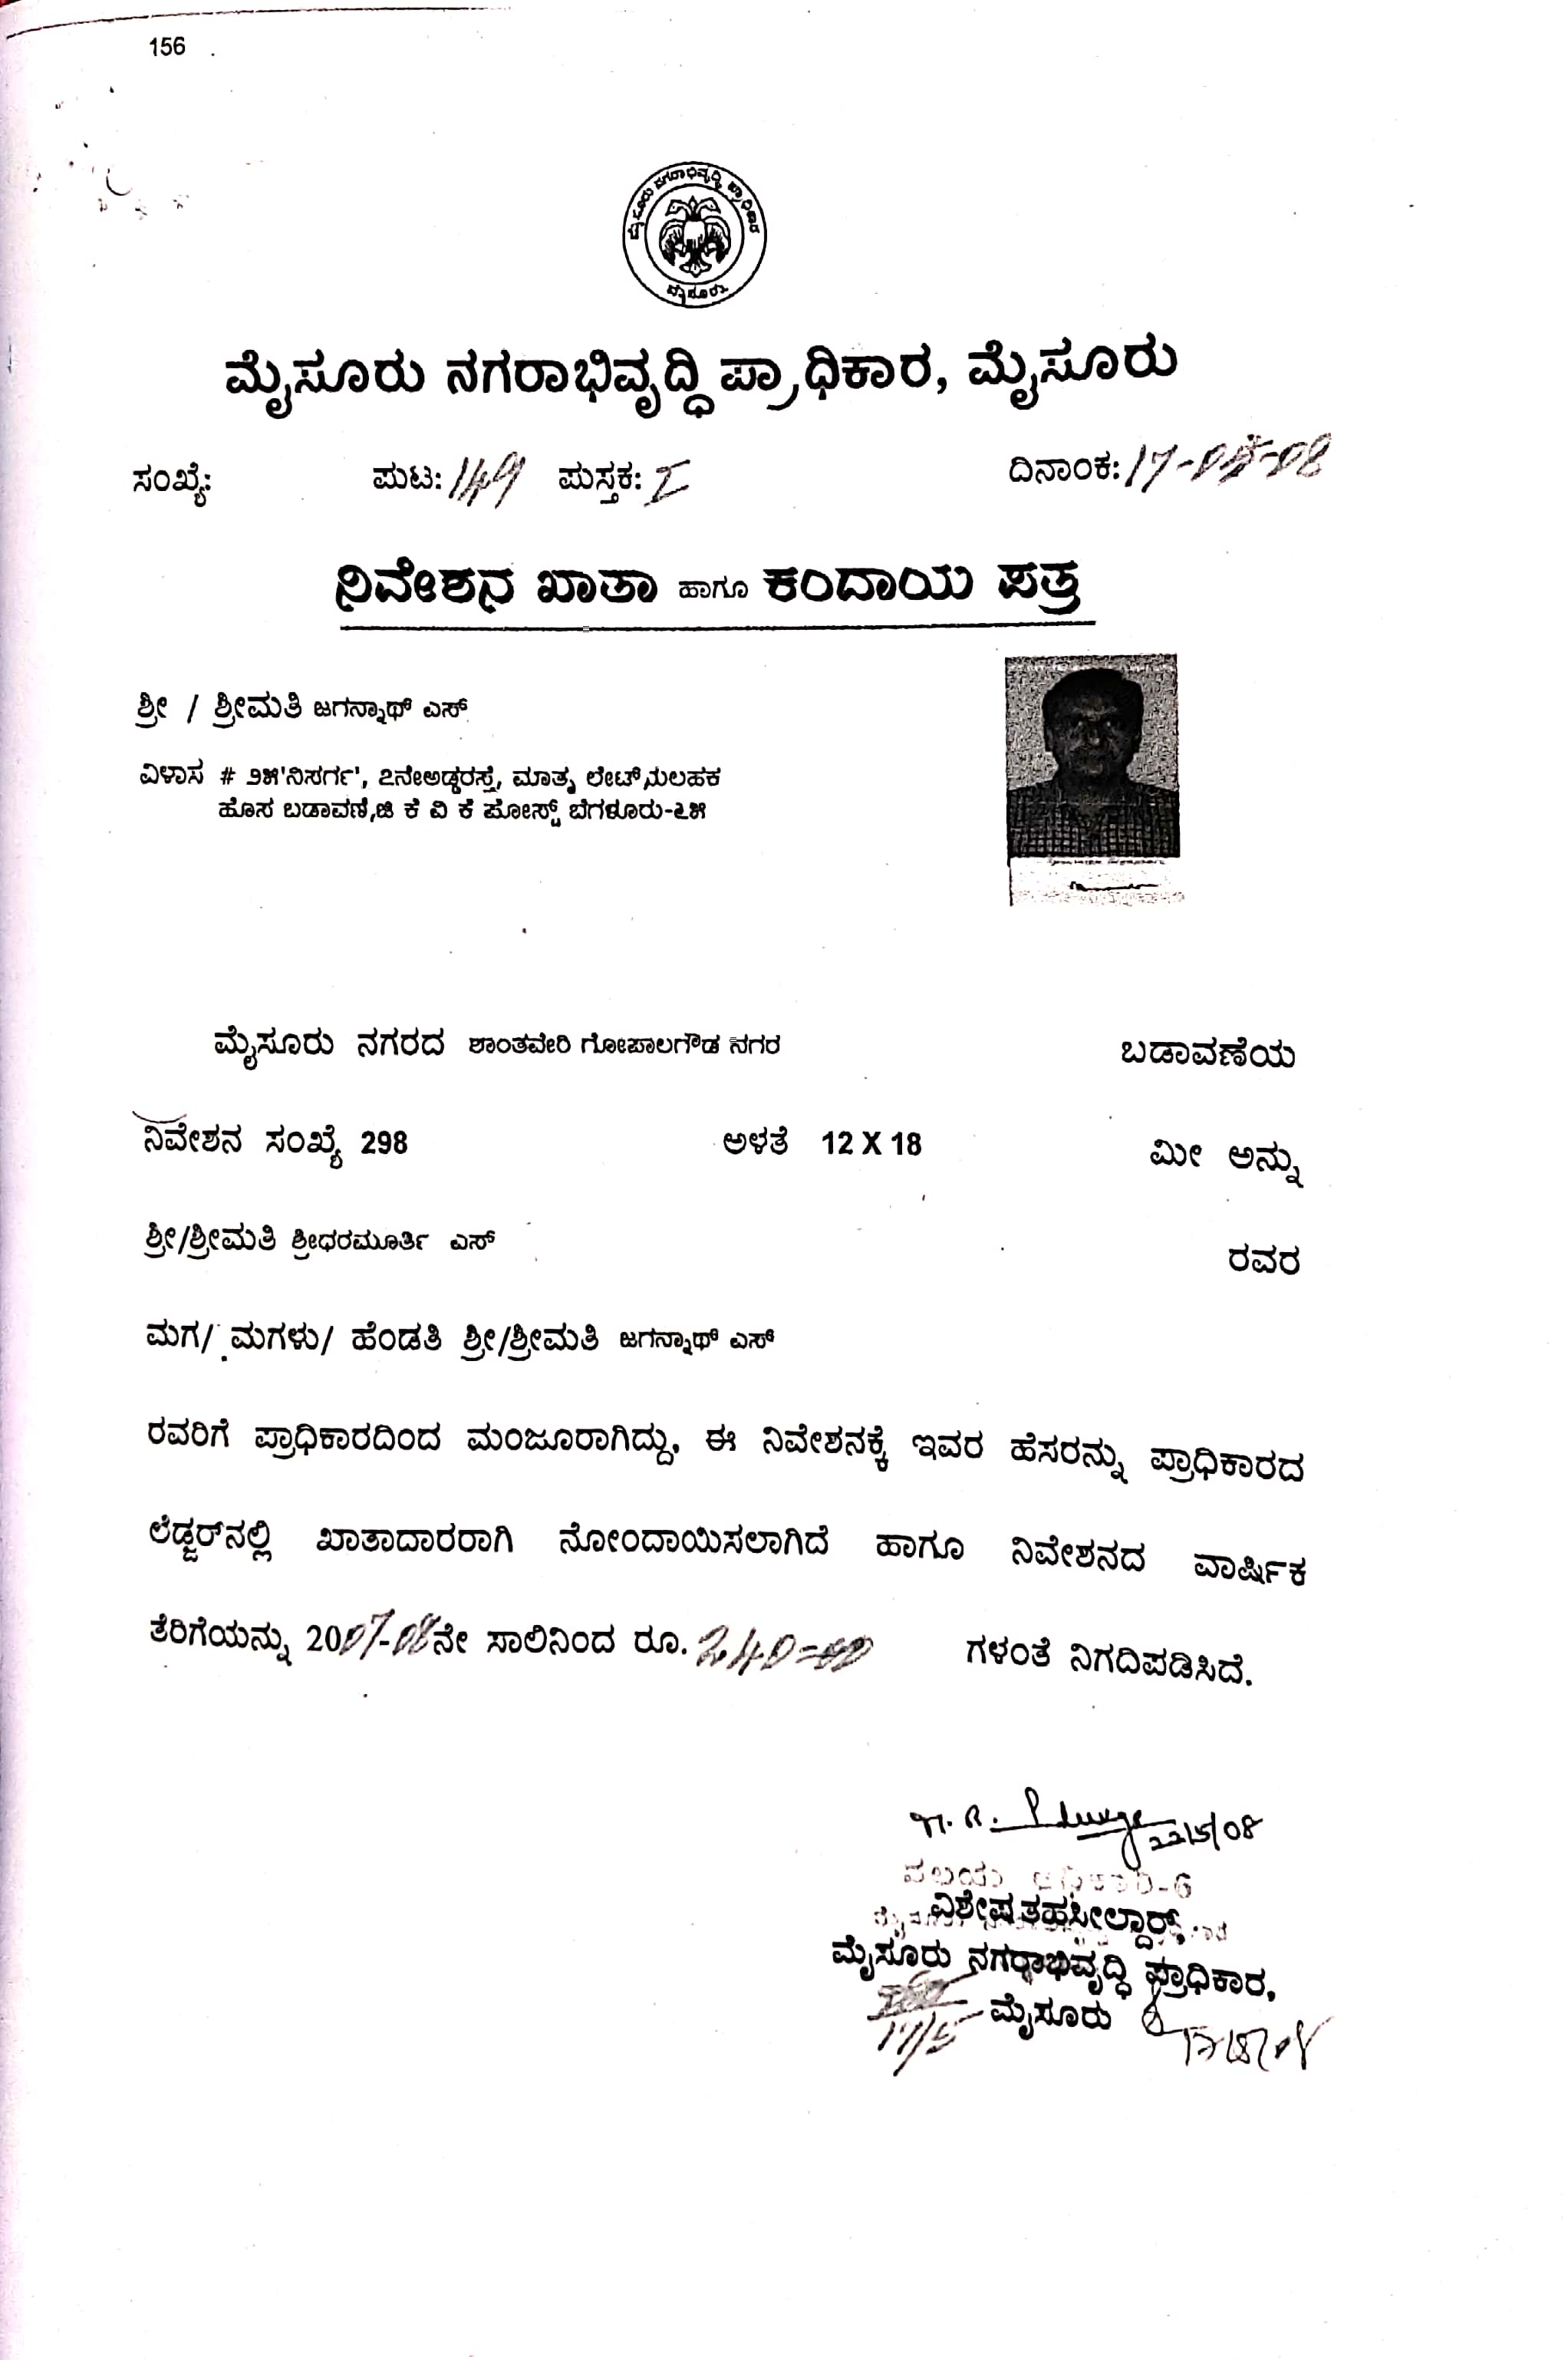 156
ಮೈಸೂರು ನಗರಾಭಿವೃದ್ಧಿ ಪ್ರಾಧಿಕಾರ
ಮೈಸೂರು
ಮೈಸೂರು ನಗರಾಭಿವೃದ್ಧಿ ಪ್ರಾಧಿಕಾರ, ಮೈಸೂರು
ಸಂಖ್ಯೆ: ಪುಟ: 149 ಪುಸ್ತಕ: I ದಿನಾಂಕ: 17-05-08
ನಿವೇಶನ ಖಾತಾ ಹಾಗೂ ಕಂದಾಯ ಪತ್ರ
ಶ್ರೀ / ಶ್ರೀಮತಿ ಜಗನ್ನಾಥ್ ಎಸ್
ವಿಳಾಸ # ೨೫'ನಿಸರ್ಗ', ೭ನೇಅಡ್ಡರಸ್ತೆ, ಮಾತೃ ಲೇಟ್,ಯಲಹಕ
ಹೊಸ ಬಡಾವಣೆ,ಜಿ ಕೆ ವಿ ಕೆ ಪೋಸ್ಟ್ ಬೆಗಳೂರು-೬೫
ಮೈಸೂರು ನಗರದ ಶಾಂತವೇರಿ ಗೋಪಾಲಗೌಡ ನಗರ ಬಡಾವಣೆಯ
ನಿವೇಶನ ಸಂಖ್ಯೆ 298 ಅಳತೆ 12 X 18 ಮೀ ಅನ್ನು
ಶ್ರೀ/ಶ್ರೀಮತಿ ಶ್ರೀಧರಮೂರ್ತಿ ಎಸ್ ರವರ
ಮಗ/ ಮಗಳು/ ಹೆಂಡತಿ ಶ್ರೀ/ಶ್ರೀಮತಿ ಜಗನ್ನಾಥ್ ಎಸ್
ರವರಿಗೆ ಪ್ರಾಧಿಕಾರದಿಂದ ಮಂಜೂರಾಗಿದ್ದು, ಈ ನಿವೇಶನಕ್ಕೆ ಇವರ ಹೆಸರನ್ನು ಪ್ರಾಧಿಕಾರದ
ಲೆಡ್ಜರ್‌ನಲ್ಲಿ ಖಾತಾದಾರರಾಗಿ ನೋಂದಾಯಿಸಲಾಗಿದೆ ಹಾಗೂ ನಿವೇಶನದ ವಾರ್ಷಿಕ
ತೆರಿಗೆಯನ್ನು 2007-08ನೇ ಸಾಲಿನಿಂದ ರೂ. 240=00 ಗಳಂತೆ ನಿಗದಿಪಡಿಸಿದೆ.
22/5/08
ವಲಯ ಅಧಿಕಾರಿ-6
ವಿಶೇಷ ತಹಸೀಲ್ದಾರ್,
ಮೈಸೂರು ನಗರಾಭಿವೃದ್ಧಿ ಪ್ರಾಧಿಕಾರ,
ಮೈಸೂರು
17/5